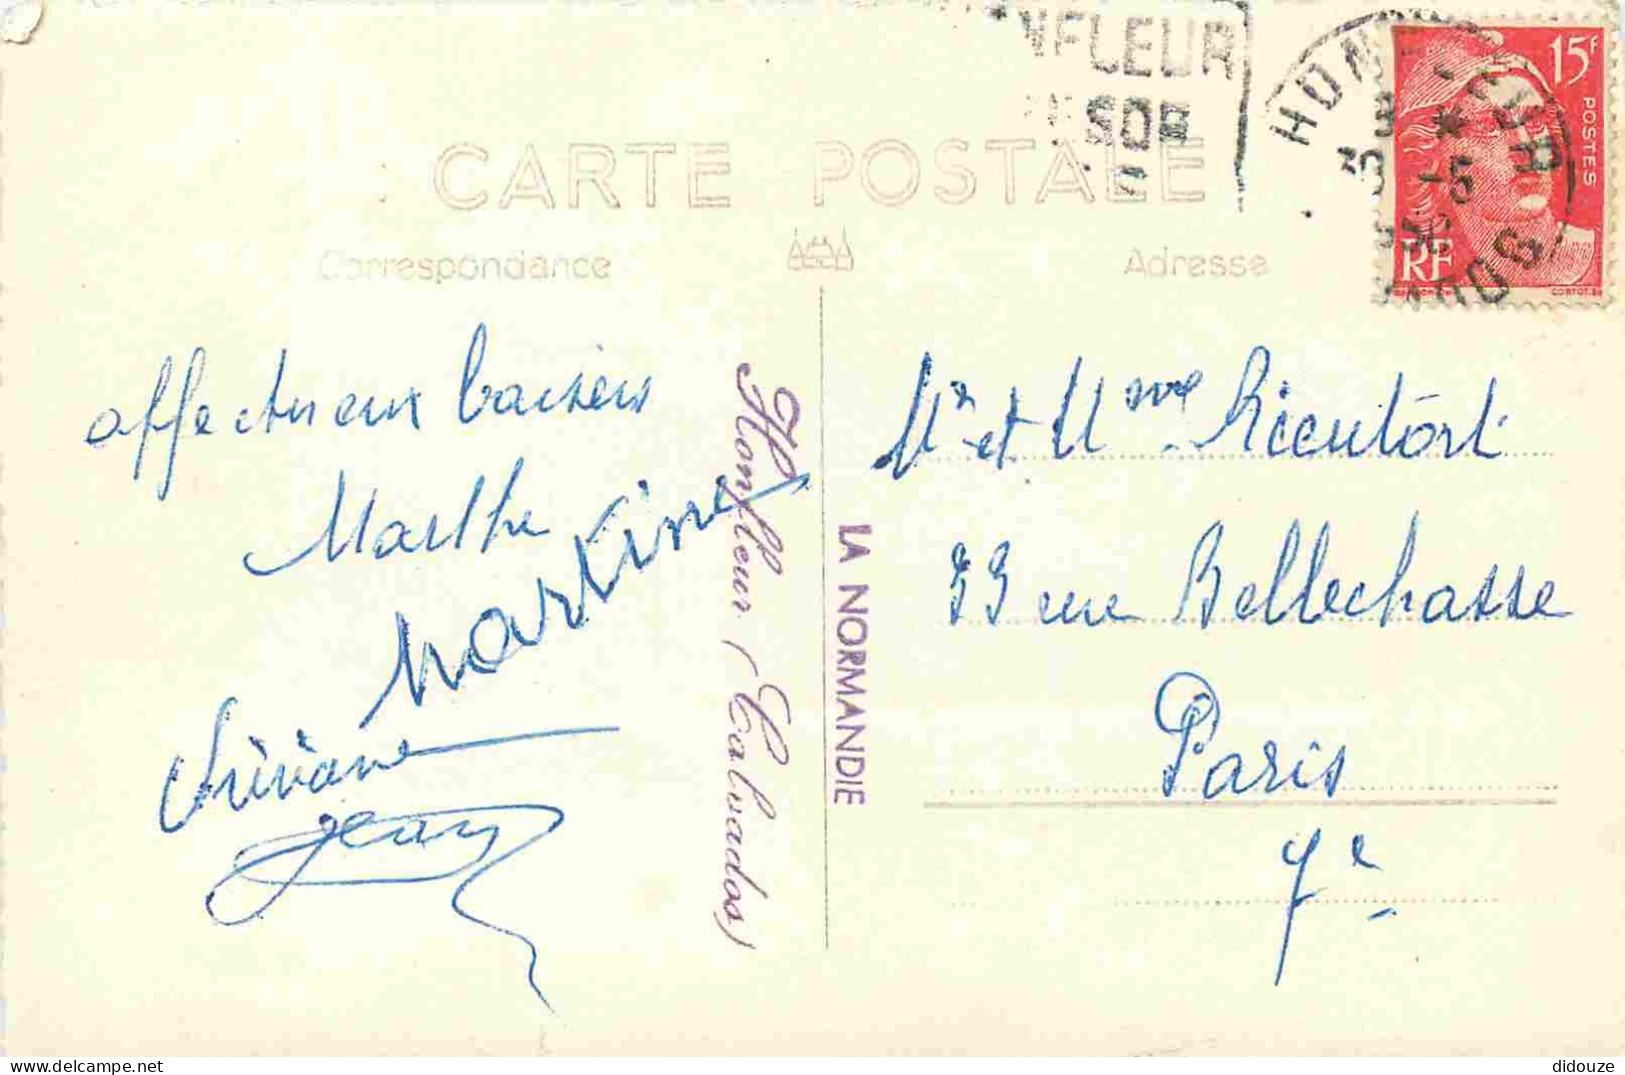 NFLEUR
HONFLEUR
15F
POSTES
RF
CARTE POSTALE
Correspondance
Adresse
affectueux baisers
Marthe
Martine
Viviane
Jean
Honfleur (Calvados)
LA NORMANDIE
Mr et Mme Rieutort
33 rue Bellechasse
Paris
7e
didouze